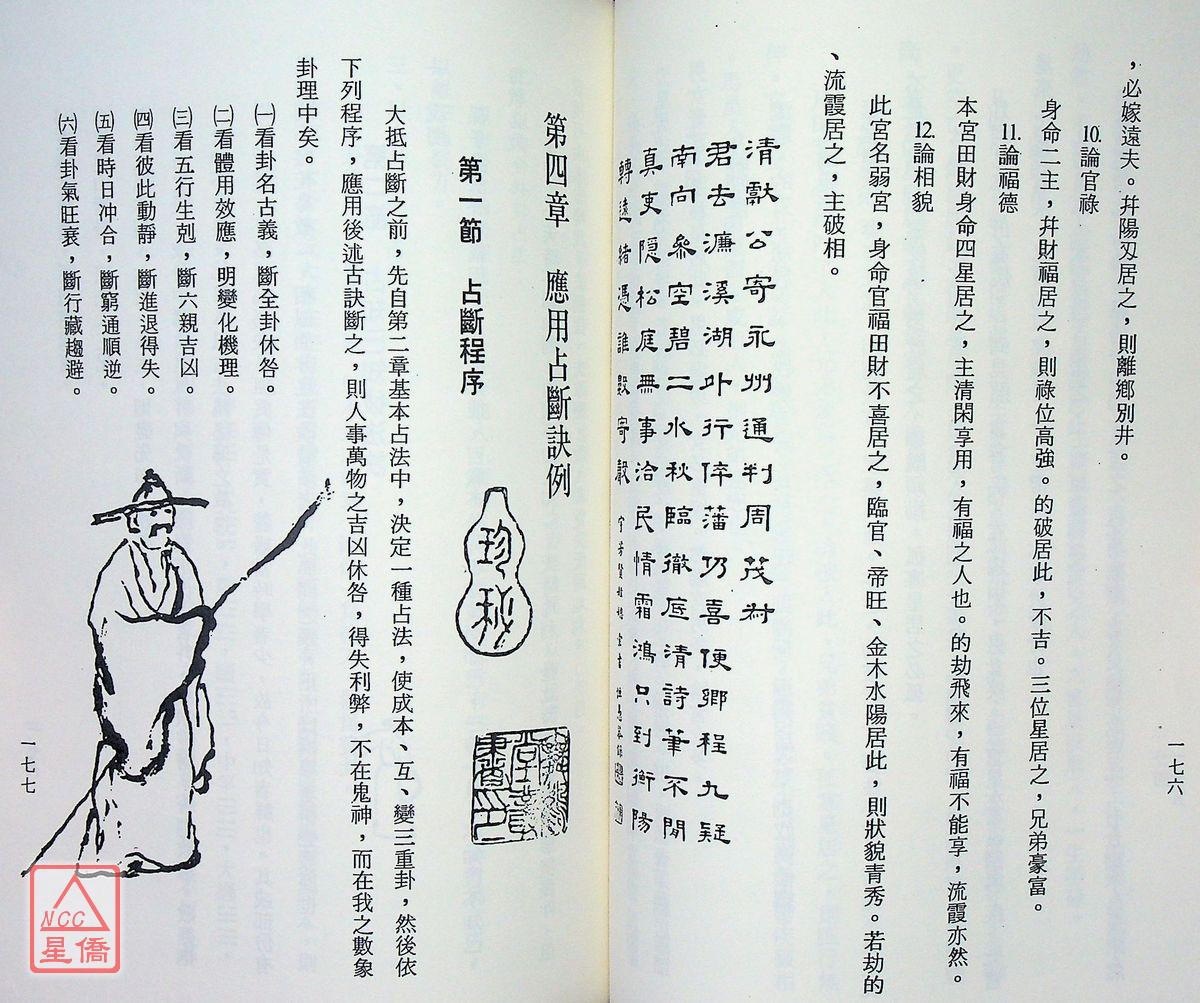 ，必嫁遠夫。幷陽刄居之，則離鄉別井。
10.論官祿
身命二主，幷財福居之，則祿位高強。的破居此，不吉。三位星居之，兄弟豪富。
11.論福德
本宮田財身命四星居之，主清閑享用，有福之人也。的劫飛來，有福不能享，流霞亦然。
12.論相貌
此宮名弱宮，身命官福田財不喜居之，臨官、帝旺、金木水陽居此，則狀貌青秀。若劫的
、流霞居之，主破相。
清獻公寄永州通判周茂叔
君去濂溪湖外行倅藩仍喜便鄉程九疑
南向參空碧二水秋臨徹底清詩筆不閒
真吏隱松庭無事洽民情霜鴻只到衡陽
轉遠緒憑誰數寄聲
一七六
第四章　應用占斷訣例
第一節　占斷程序
珍秘
大抵占斷之前，先自第二章基本占法中，決定一種占法，使成本、互、變三重卦，然後依
下列程序，應用後述古訣斷之，則人事萬物之吉凶休咎，得失利弊，不在鬼神，而在我之數象
卦理中矣。
㈠看卦名古義，斷全卦休咎。
㈡看體用效應，明變化機理。
㈢看五行生剋，斷六親吉凶。
㈣看彼此動靜，斷進退得失。
㈤看時日冲合，斷窮通順逆。
㈥看卦氣旺衰，斷行藏趨避。
一七七
NCC
星僑